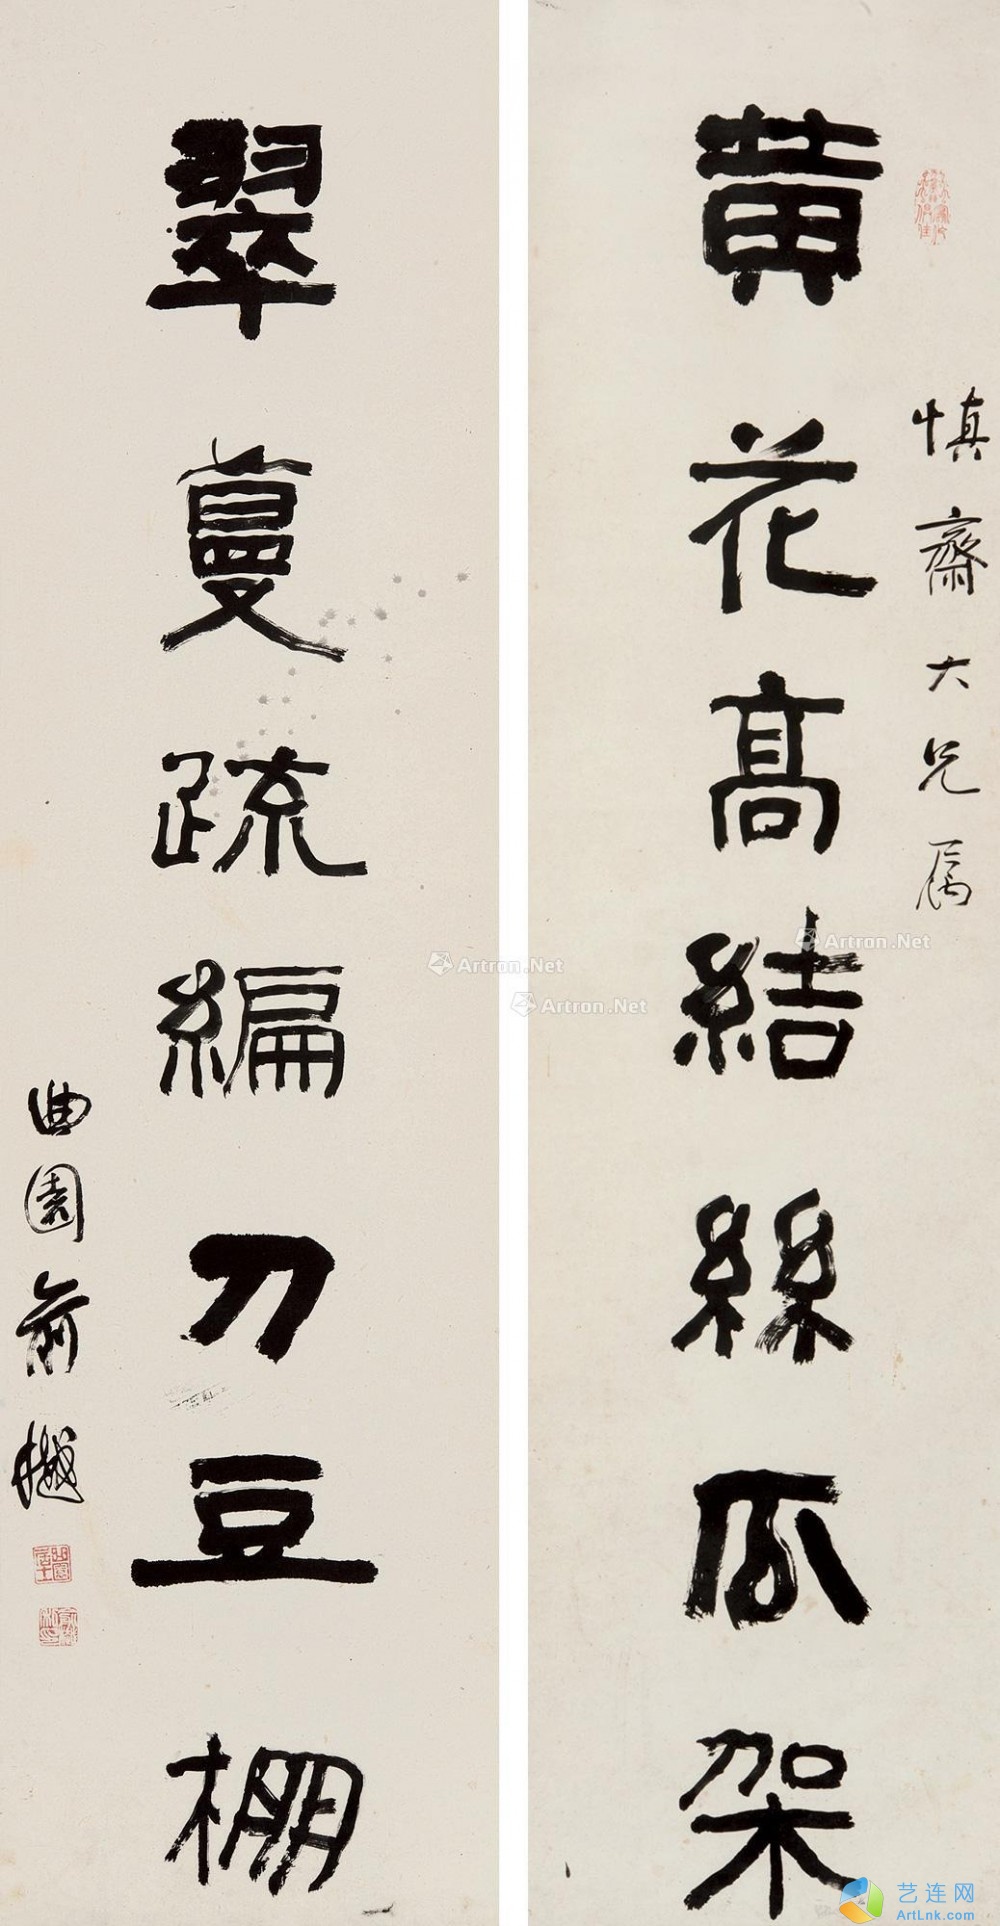 慎齋大兄属
黄花高結絲瓜架
翠蔓疏編刀豆棚
曲園俞樾
曲園居士
俞樾之印
Artron.Net
Artron.Net
Artron.Net
艺连网
ArtLnk.com